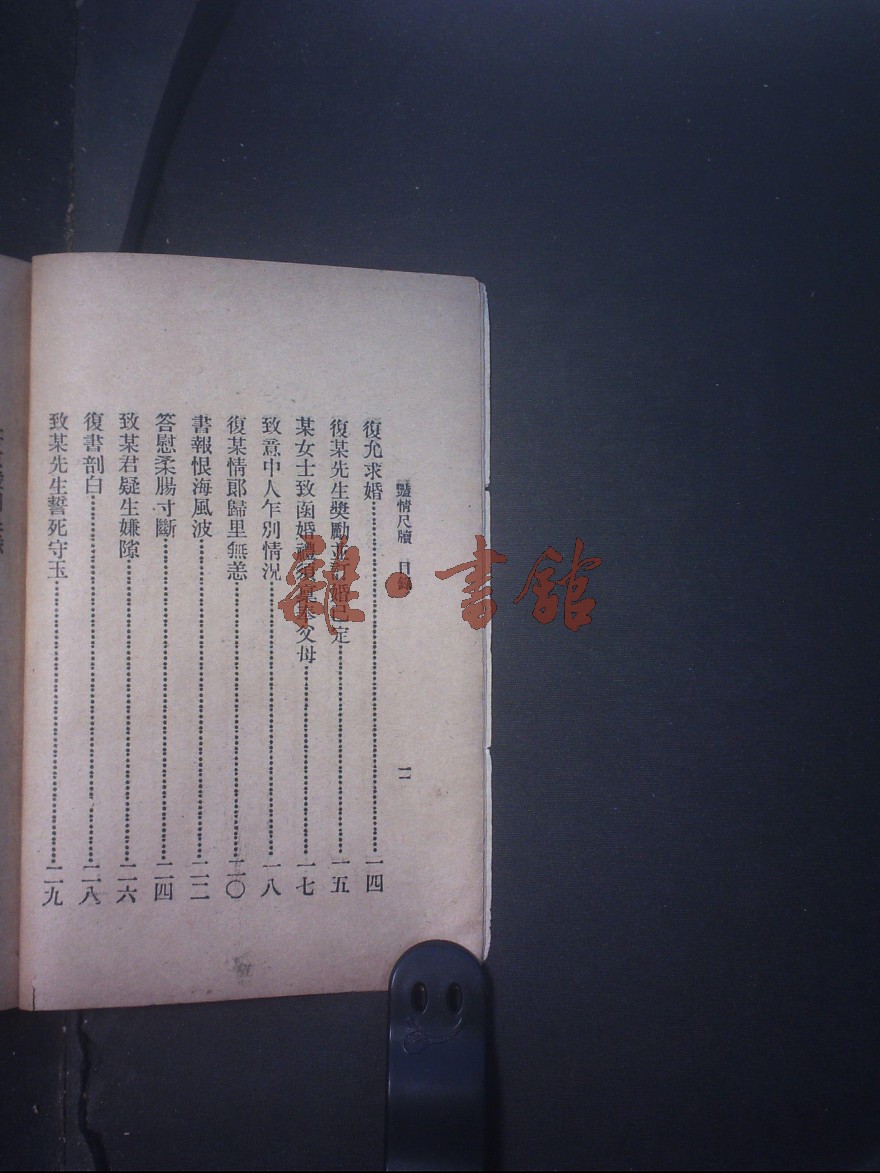 艷情尺牘 目錄 二
復允求婚 一四
復某先生獎勵並訂婚已定 一五
某女士致函婚禮須稟奉父母 一七
致意中人乍別情況 一八
復某情郎歸里無恙 二〇
書報恨海風波 二二
答慰柔腸寸斷 二四
致某君疑生嫌隙 二六
復書剖白 二八
致某先生誓死守玉 二九
雜·書館